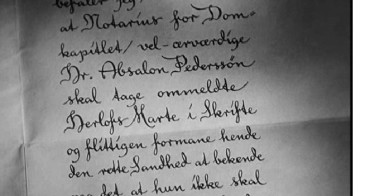 befaler jeg,
at Notarius for Dom-
kapitlet/ vel-ærværdige
Hr. Absalon Pederssön
skal tage ommeldte
Herlofs-Marte i Skrifte
og flittigen formane hende
den rette Sandhed at bekende
det at hun ikke skal